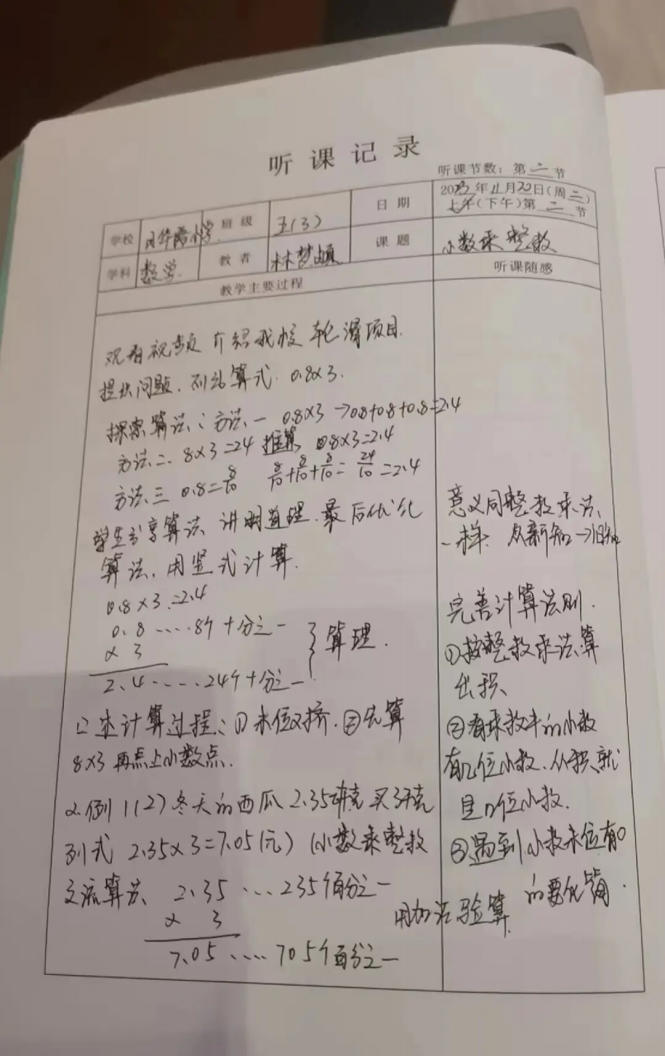 听课记录
听课节数：第二节
学校 小学 班级 五(3) 日期 2023年11月20日(周二)
上午(下午)第二节
学科 数学 教者 林梦 课题 小数乘整数
教学主要过程 听课随感
观看视频 介绍我校轮滑项目.
提出问题.列出算式 0.8×3.
探索算法：方法一 0.8×3→0.8+0.8+0.8=2.4
方法二. 8×3=24 推算 0.8×3=2.4
方法三 0.8=8/10 8/10+8/10+8/10=24/10=2.4
学生分享算法 讲明道理.最后优化
算法.用竖式计算.
0.8×3=2.4
0.8 ....8个十分之一
× 3
2.4 .....24个十分之一
}算理.
口述计算过程：①末位对齐.②先算
8×3再点上小数点.
2.例1(2)冬天的西瓜2.35 买3千克
列式 2.35×3=7.05(元) (小数乘整数
交流算法 2.35 ...235个百分之一
× 3
7.05 ....705个百分之一
用加法验算
意义同整数乘法
一样. 从新知→旧知
完善计算法则.
①按整数乘法算
出积
②看乘数中的小数
有几位小数.从积就
是几位小数.
③遇到小数末位有0
的要化简.